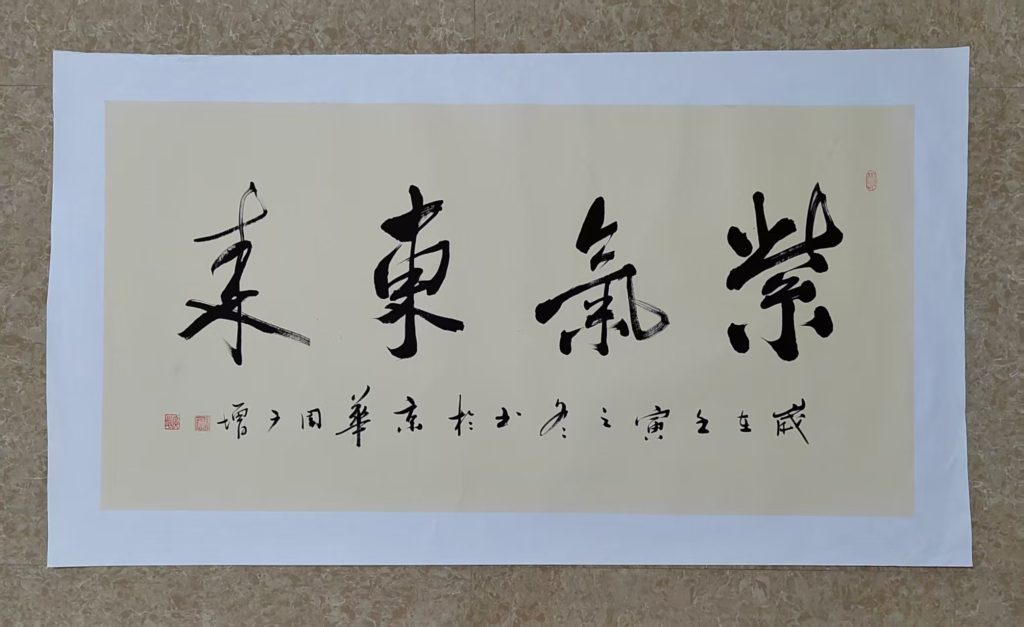 紫氣東來
歲在壬寅之冬书於京華周子增